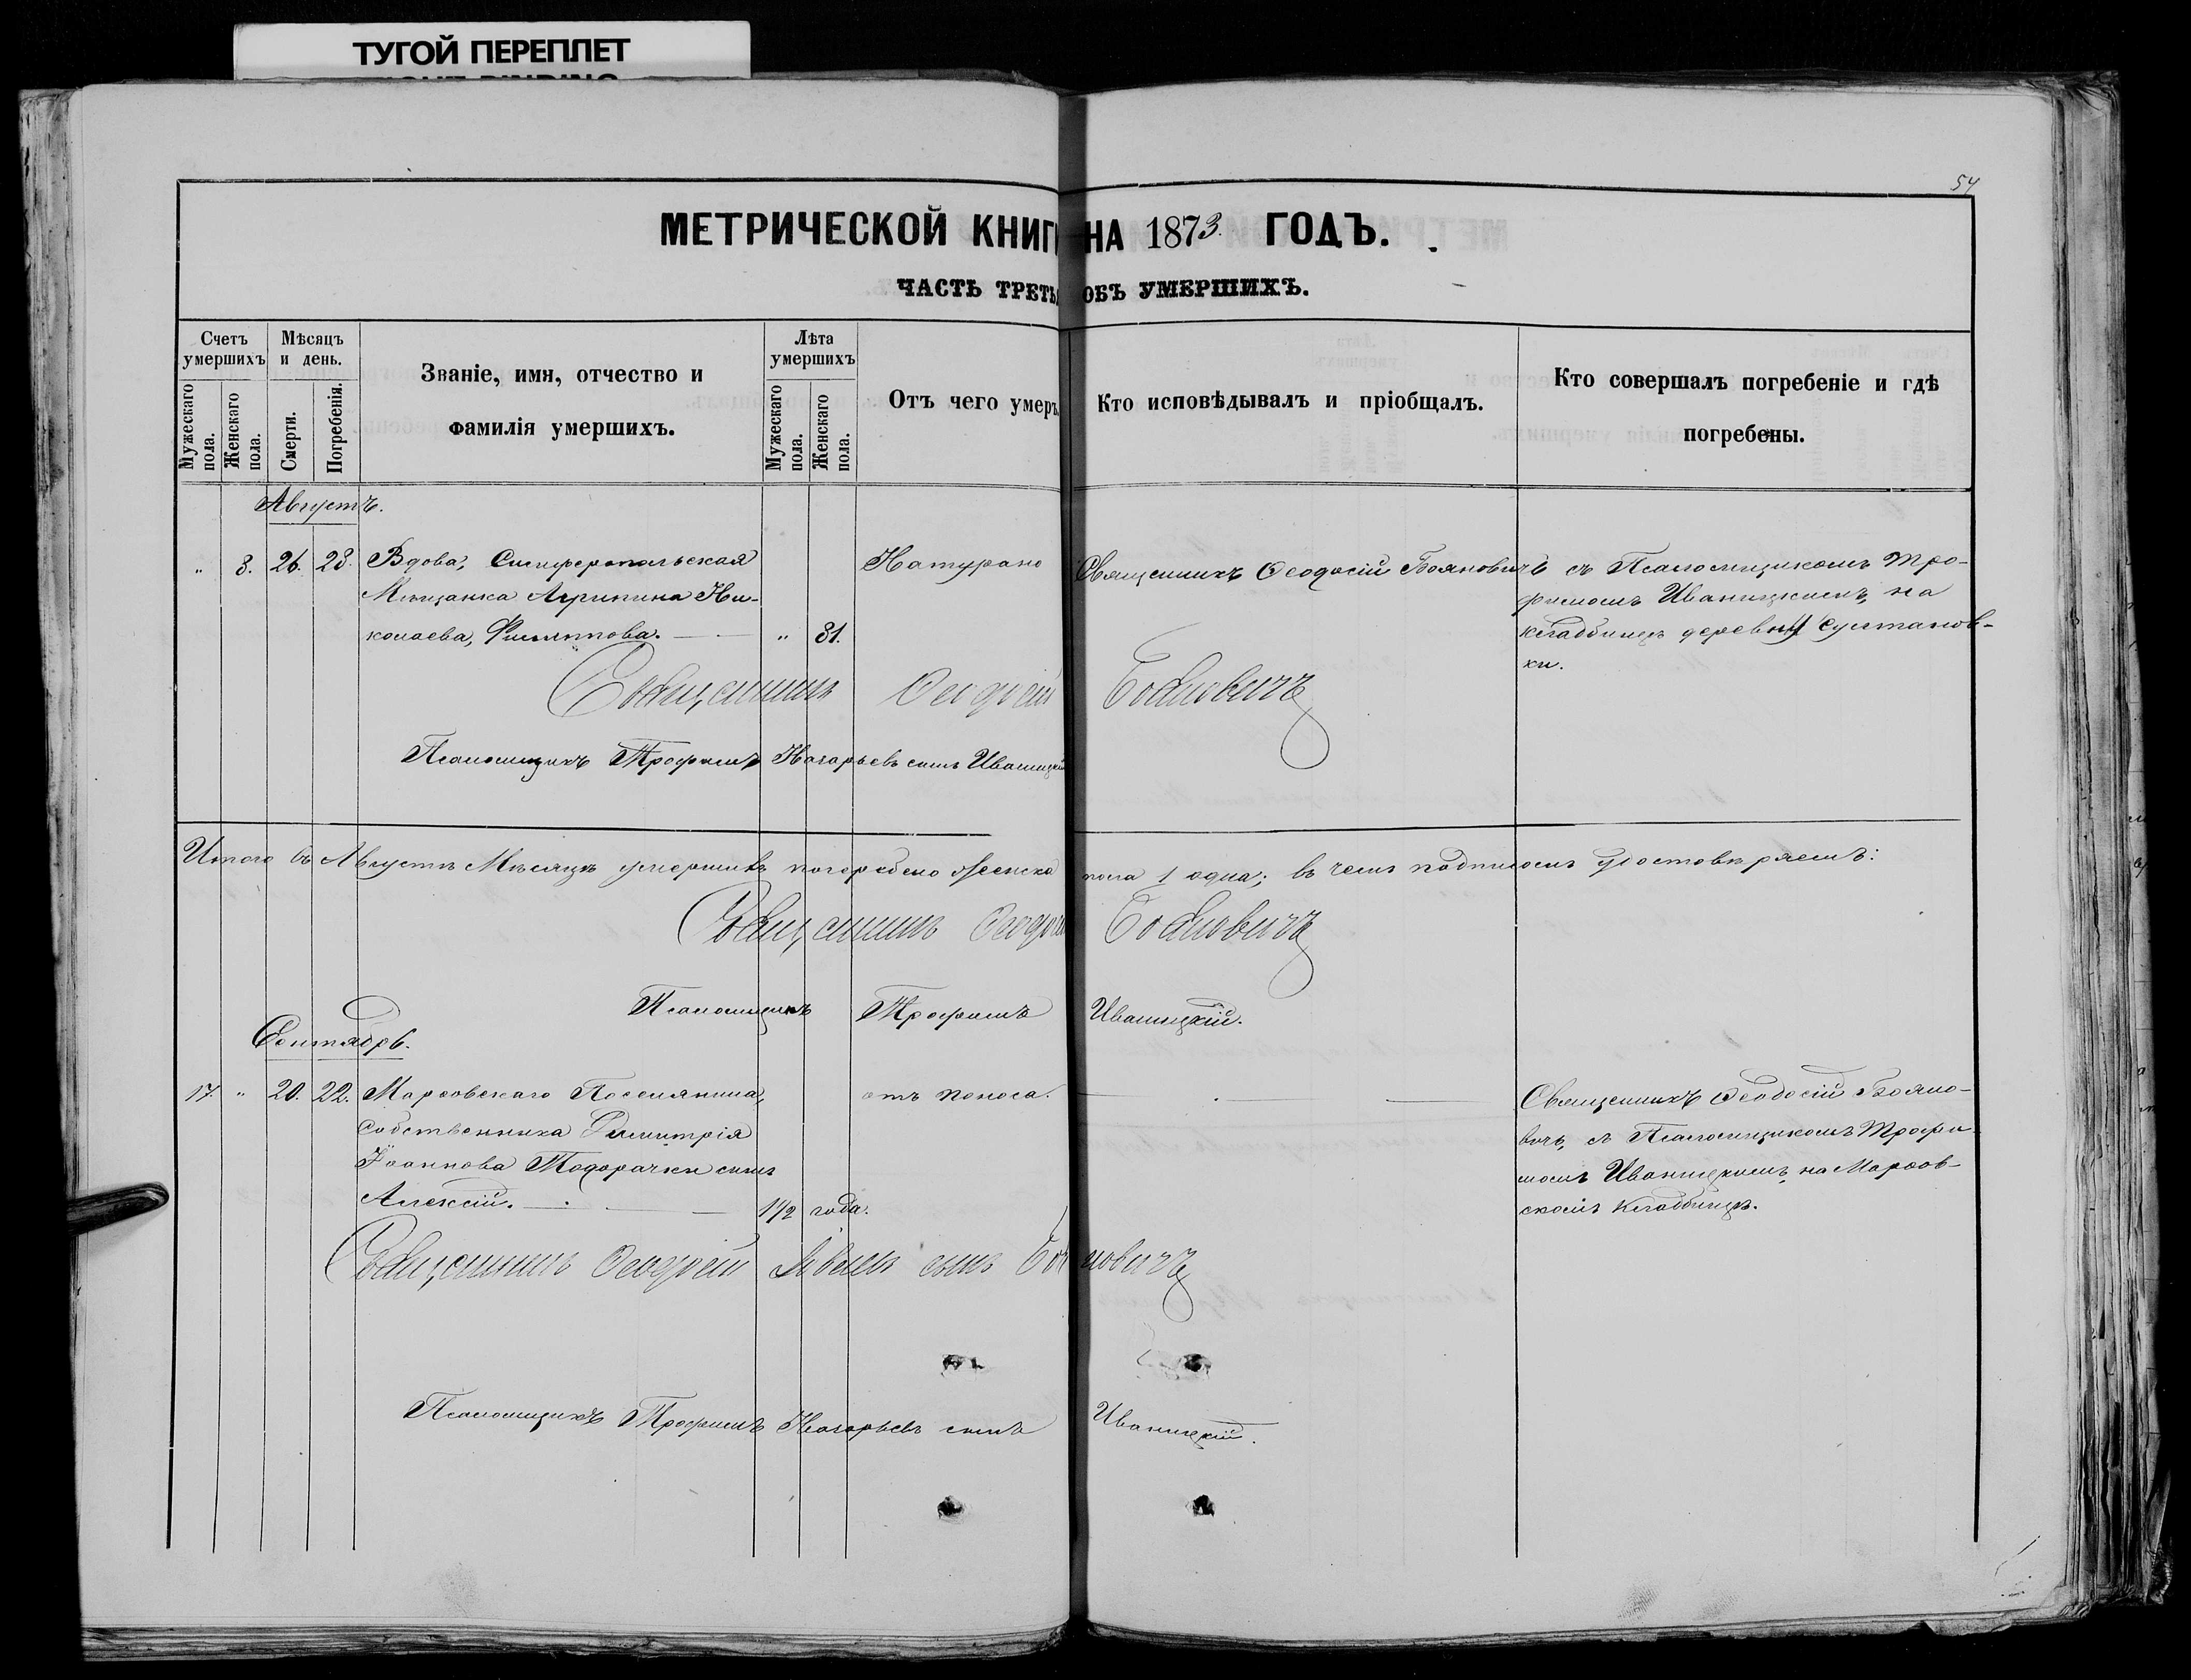 ТУГОЙ ПЕРЕПЛЕТ
54
МЕТРИЧЕСКОЙ КНИГ НА 1873. ГОДЪ.
ЧАСТЬ ТРЕТЬ ОБЪ УМЕРШИХЪ.
Счетъ умершихъ
Мужескаго пола.
Женскаго пола.
Мѣсяцъ и день.
Смерти.
Погребенія.
Званіе, имя, отчество и
фамилія умершихъ.
Лѣта умершихъ
Мужескаго пола.
Женскаго пола.
Отъ чего умеръ
Кто исповѣдывалъ и пріобщалъ.
Кто совершалъ погребеніе и гдѣ
погребены.
Августъ.
" 8. 26. 28. Вдова, Симферопольская Натурано Священникъ Ѳеодосій Бояновичъ съ Псаломщикомъ Тро-
Мѣщанка Агрипина Ни- фимомъ Иваницкимъ, на
колаева, Филиппова. — " 81. кладбищѣ деревни Султанов-
ки.
Священникъ Ѳеодосій Бояновичъ
Псаломщикъ Трофимъ Назарьевъ сынъ Иваницкій
Итого въ Августѣ Мѣсяцѣ умершихъ погребено Женска пола 1 одна; въ чемъ подписомъ удостовѣряемъ:
Священникъ Ѳеодосій Бояновичъ
Псаломщикъ Трофимъ Иваницкій.
Сентябрь.
17. " 20. 22. Марѳовскаго Поселянина, отъ поноса. — Священникъ Ѳеодосій Бояно-
Собственника Димитрія вичъ, съ Псаломщикомъ Трофи-
Іоаннова Тодорачки сынъ момъ Иваницкимъ, на Марѳов-
Алексій. — 1 1/2 года. скомъ кладбищѣ.
Священникъ Ѳеодосій сынъ Бояновичъ
Псаломщикъ Трофимъ Назарьевъ сынъ Иваницкій.